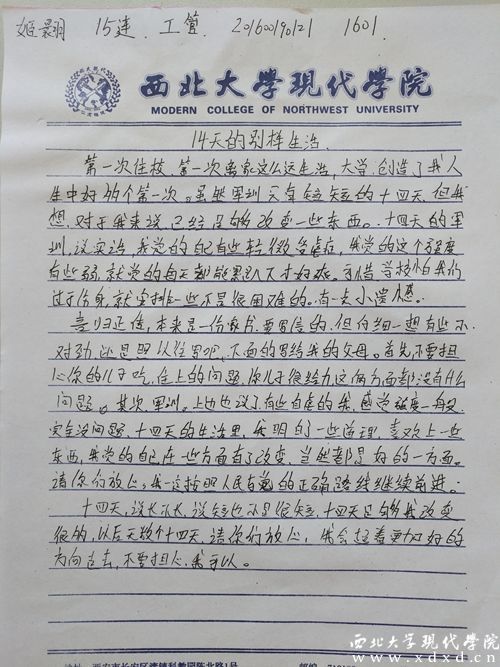 姬景羽 15连 工管 20160090121 1601
西北大學現代學院
MODERN COLLEGE OF NORTHWEST UNIVERSITY
14天的别样生活
第一次住校,第一次离家这么远生活,大学,创造了我人
生中好多个第一次。虽然军训只有短短的十四天,但我
想,对于我来说,已经足够改变一些东西。十四天的军
训,说实话,我觉的自己有些轻微受虐症,我觉的这个强度
有些弱,就觉的每天都能累趴下才好哒,可惜学校怕我们
过于伤身,就安排一些不是很困难的。有一点小遗憾。
言归正传,本来是一份家书,要写信的,但仔细一想有些不
对劲,还是照以往写吧,下面的写给我的父母。首先不要担
心你的儿子吃,住上的问题,你儿子很给力,这俩方面都没有什么
问题。其次,军训。上边也说了有些自虐的我,感觉强度一般,
完全没问题,十四天的生活里,我明白了一些道理,喜欢上一些
东西,我觉的自己在一些方面有了改变,当然都是好的一方面。
请你们放心,我一定按照人民有范的正确路线继续前进。
十四天,说长不长,说短也不是很短,十四天足够我改变
很多,以后无数个十四天,请你们放心,我会超着更加好的
方向走去,不要担心,我可以。
地址:西安市长安区滦镇科教园陈北路1号
邮编:
西北大学现代学院
www.xdxd.cn